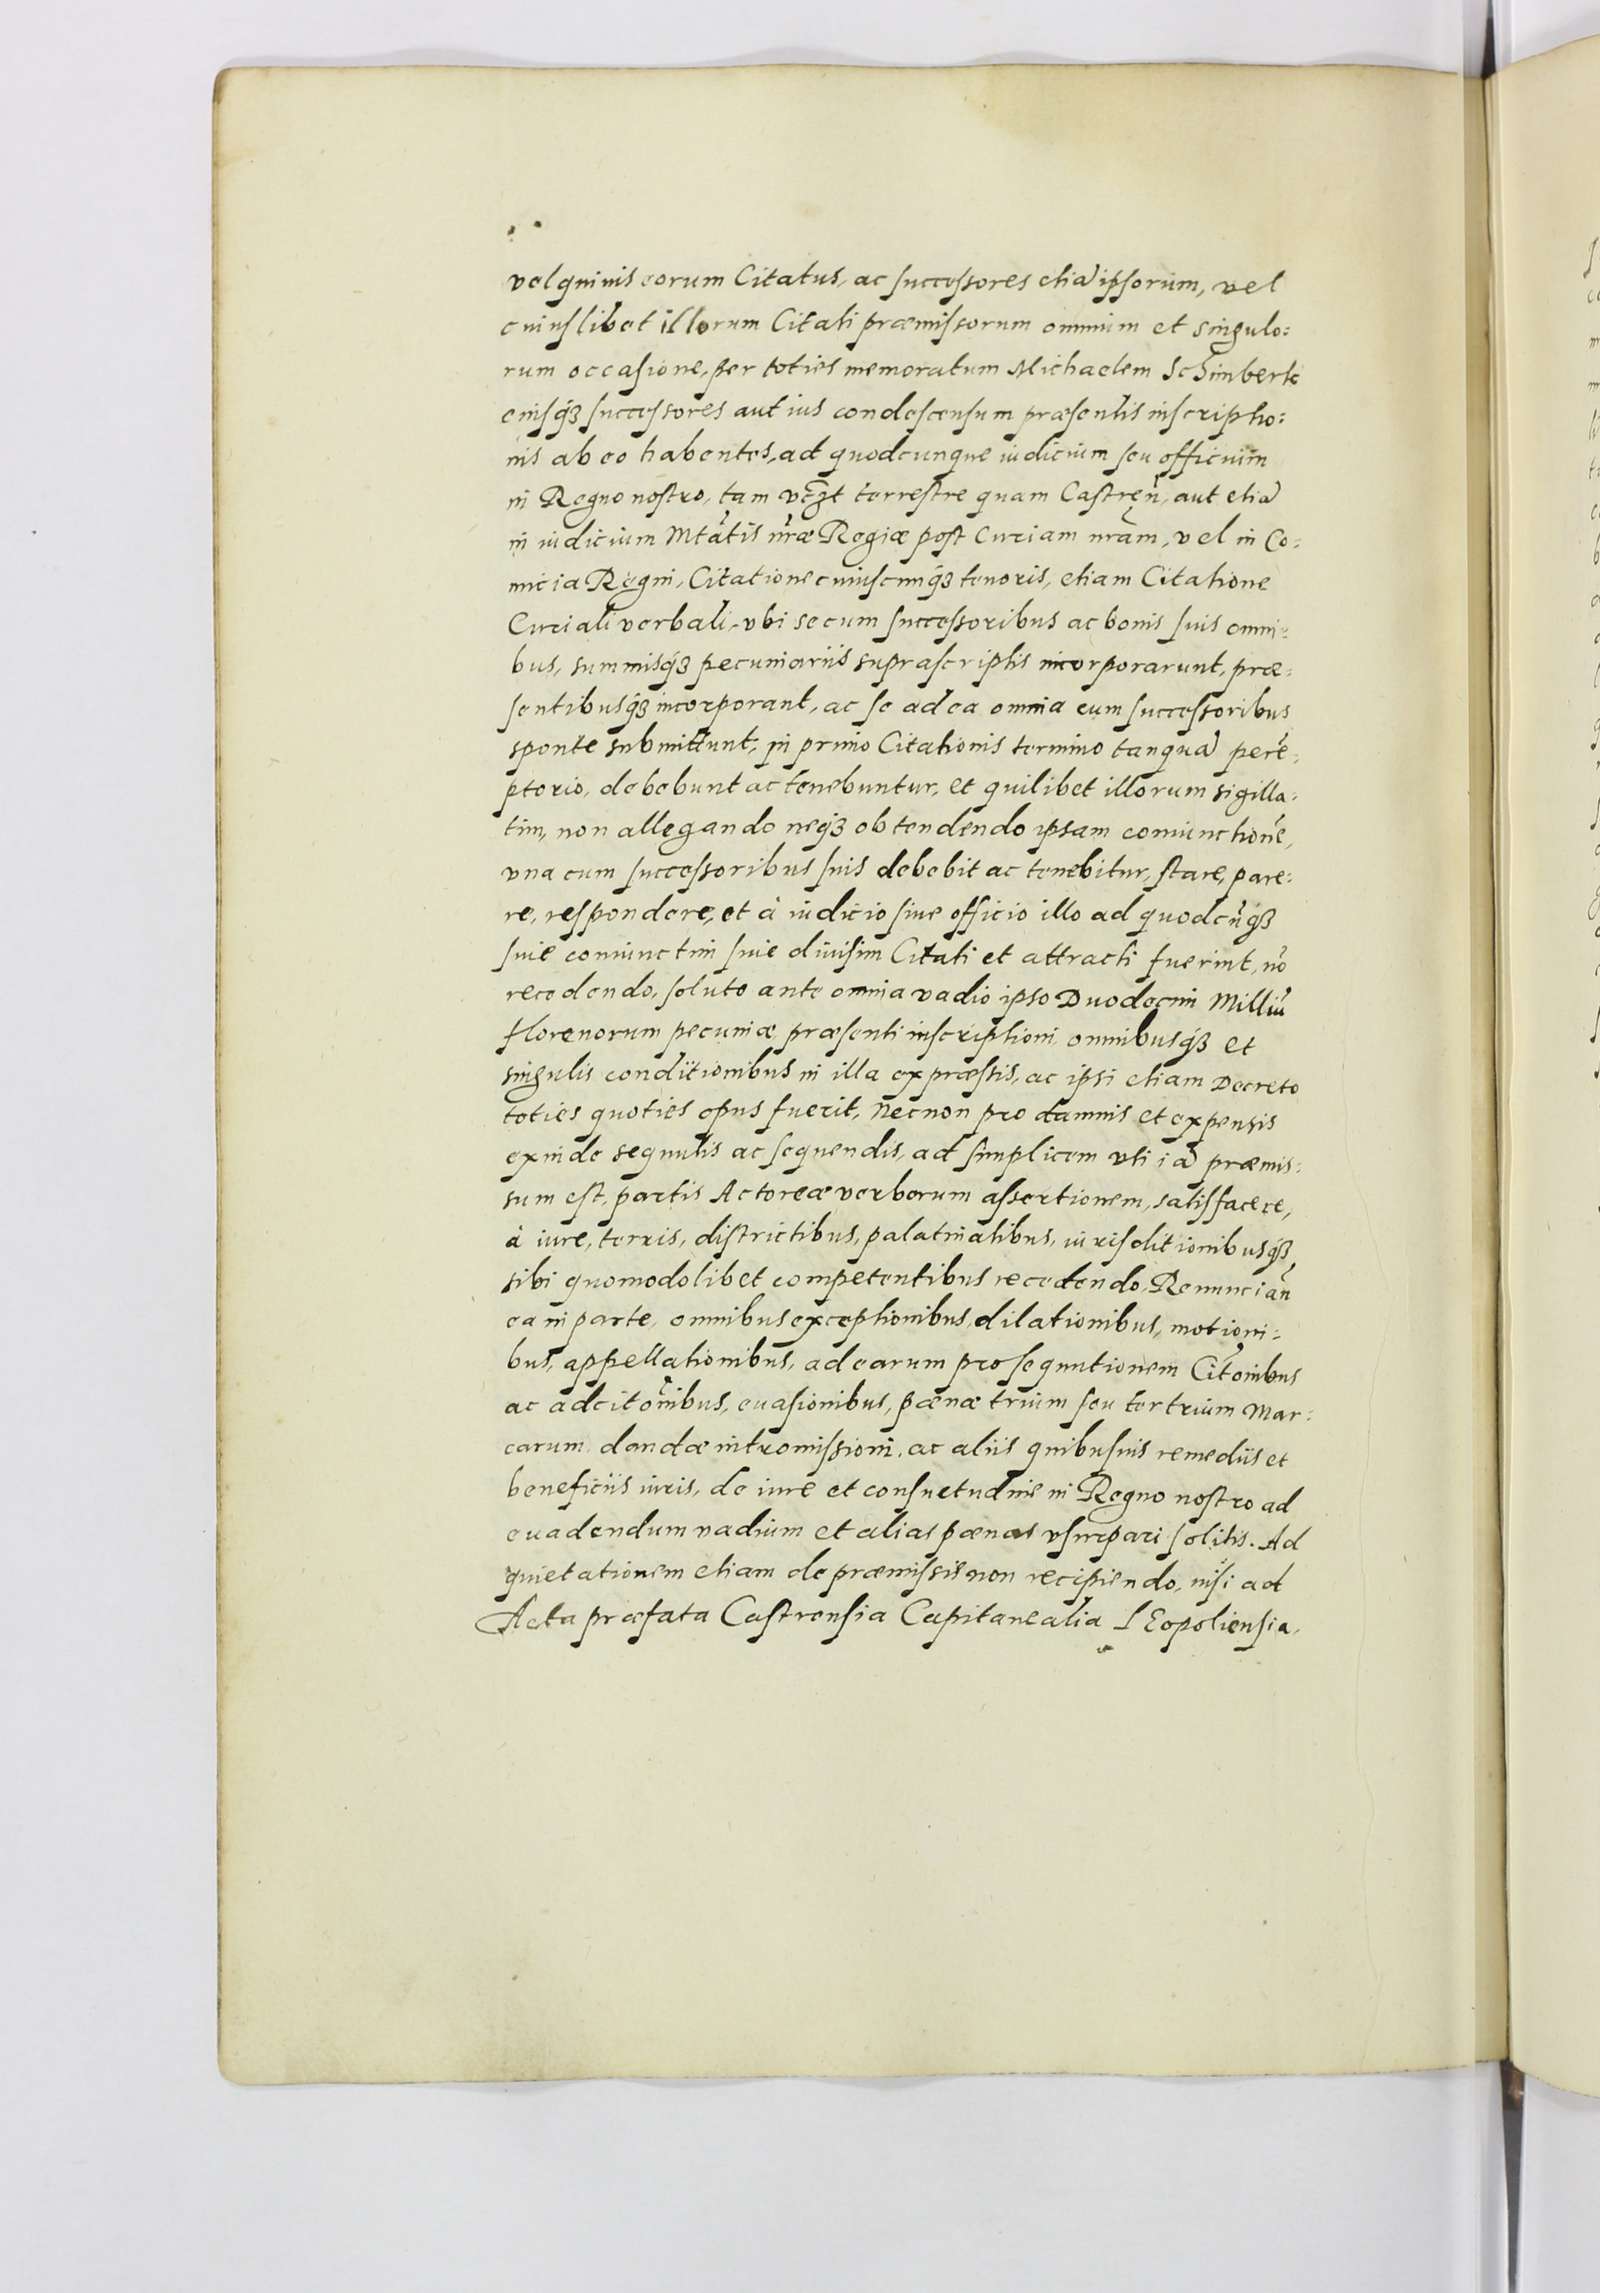 vel quiuis eorum Citatus, ac successores etiā ipsorum, vel
cuiuslibet illorum Citati præmissorum omnium et singulo=
rum occasione, per toties memoratum Michaelem Schimberk
eiusq́ꝫ successores aut ius condescensum præsentis inscriptio=
nis ab eo habentes, ad quodcunque iudicium seu officium
in Regno nostro, tam terrestre quam Castreñ, aut etiā
in iudicium Mtãtis nrãe Regiæ post Curiam nrãm, vel in Co=
micia Regni, Citatione cuiuscunq́ꝫ tenoris, etiam Citatione
Curiali verbali, vbi se cum successoribus ac bonis suis omni=
bus, summisq́ꝫ pecuniariis suprascriptis incorporarunt, præ=
sentibusq́ꝫ incorporant, ac se ad ea omnia cum successoribus
sponte submittunt, in primo Citationis termino tanquā perē=
ptorio, debebunt ac tenebuntur, et quilibet illorum sigilla=
tim, non allegando neq́ꝫ obtendendo ipsam coniunctionē,
vna cum successoribus suis debebit ac tenebitur, stare, pare=
re, respondere, et à iudicio siue officio illo ad quodcūq́ꝫ
siue coniunctim siue diuisim Citati et attracti fuerint, nō
recedendo, soluto ante omnia vadio ipso Duodecim Milliū
florenorum pecuniæ præsenti inscriptioni omnibusq́ꝫ et
singulis conditionibus in illa expræssis, ac ipsi etiam Decreto
toties quoties opus fuerit, Necnon pro damnis et expensis
exinde sequutis ac sequendis, ad simplicem vti iā præmis=
sum est, partis Actoreæ verborum assertionem, satisfacere,
à iure, terris, districtibus, palatinatibus, iurisditionibusq́ꝫ
sibi quomodolibet competentibus recedendo. Renunciañ
ea in parte, omnibus exceptionibus, dilationibus, motioni=
bus, appellationibus, ad earum prosequutionem Citõnibus
ac adcitõnibus, euasionibus, pænæ trium seu ter trium Mar=
carum, dandæ intromissioni, ac aliis quibusuis remediis et
beneficiis iuris, de iure et consuetudine in Regno nostro ad
euadendum vadium et alias pænas vsurpari solitis. Ad
quietationem etiam de præmissis non recipiendo, nisi ad
Acta præfata Castrensia Capitanealia LEopoliensia.